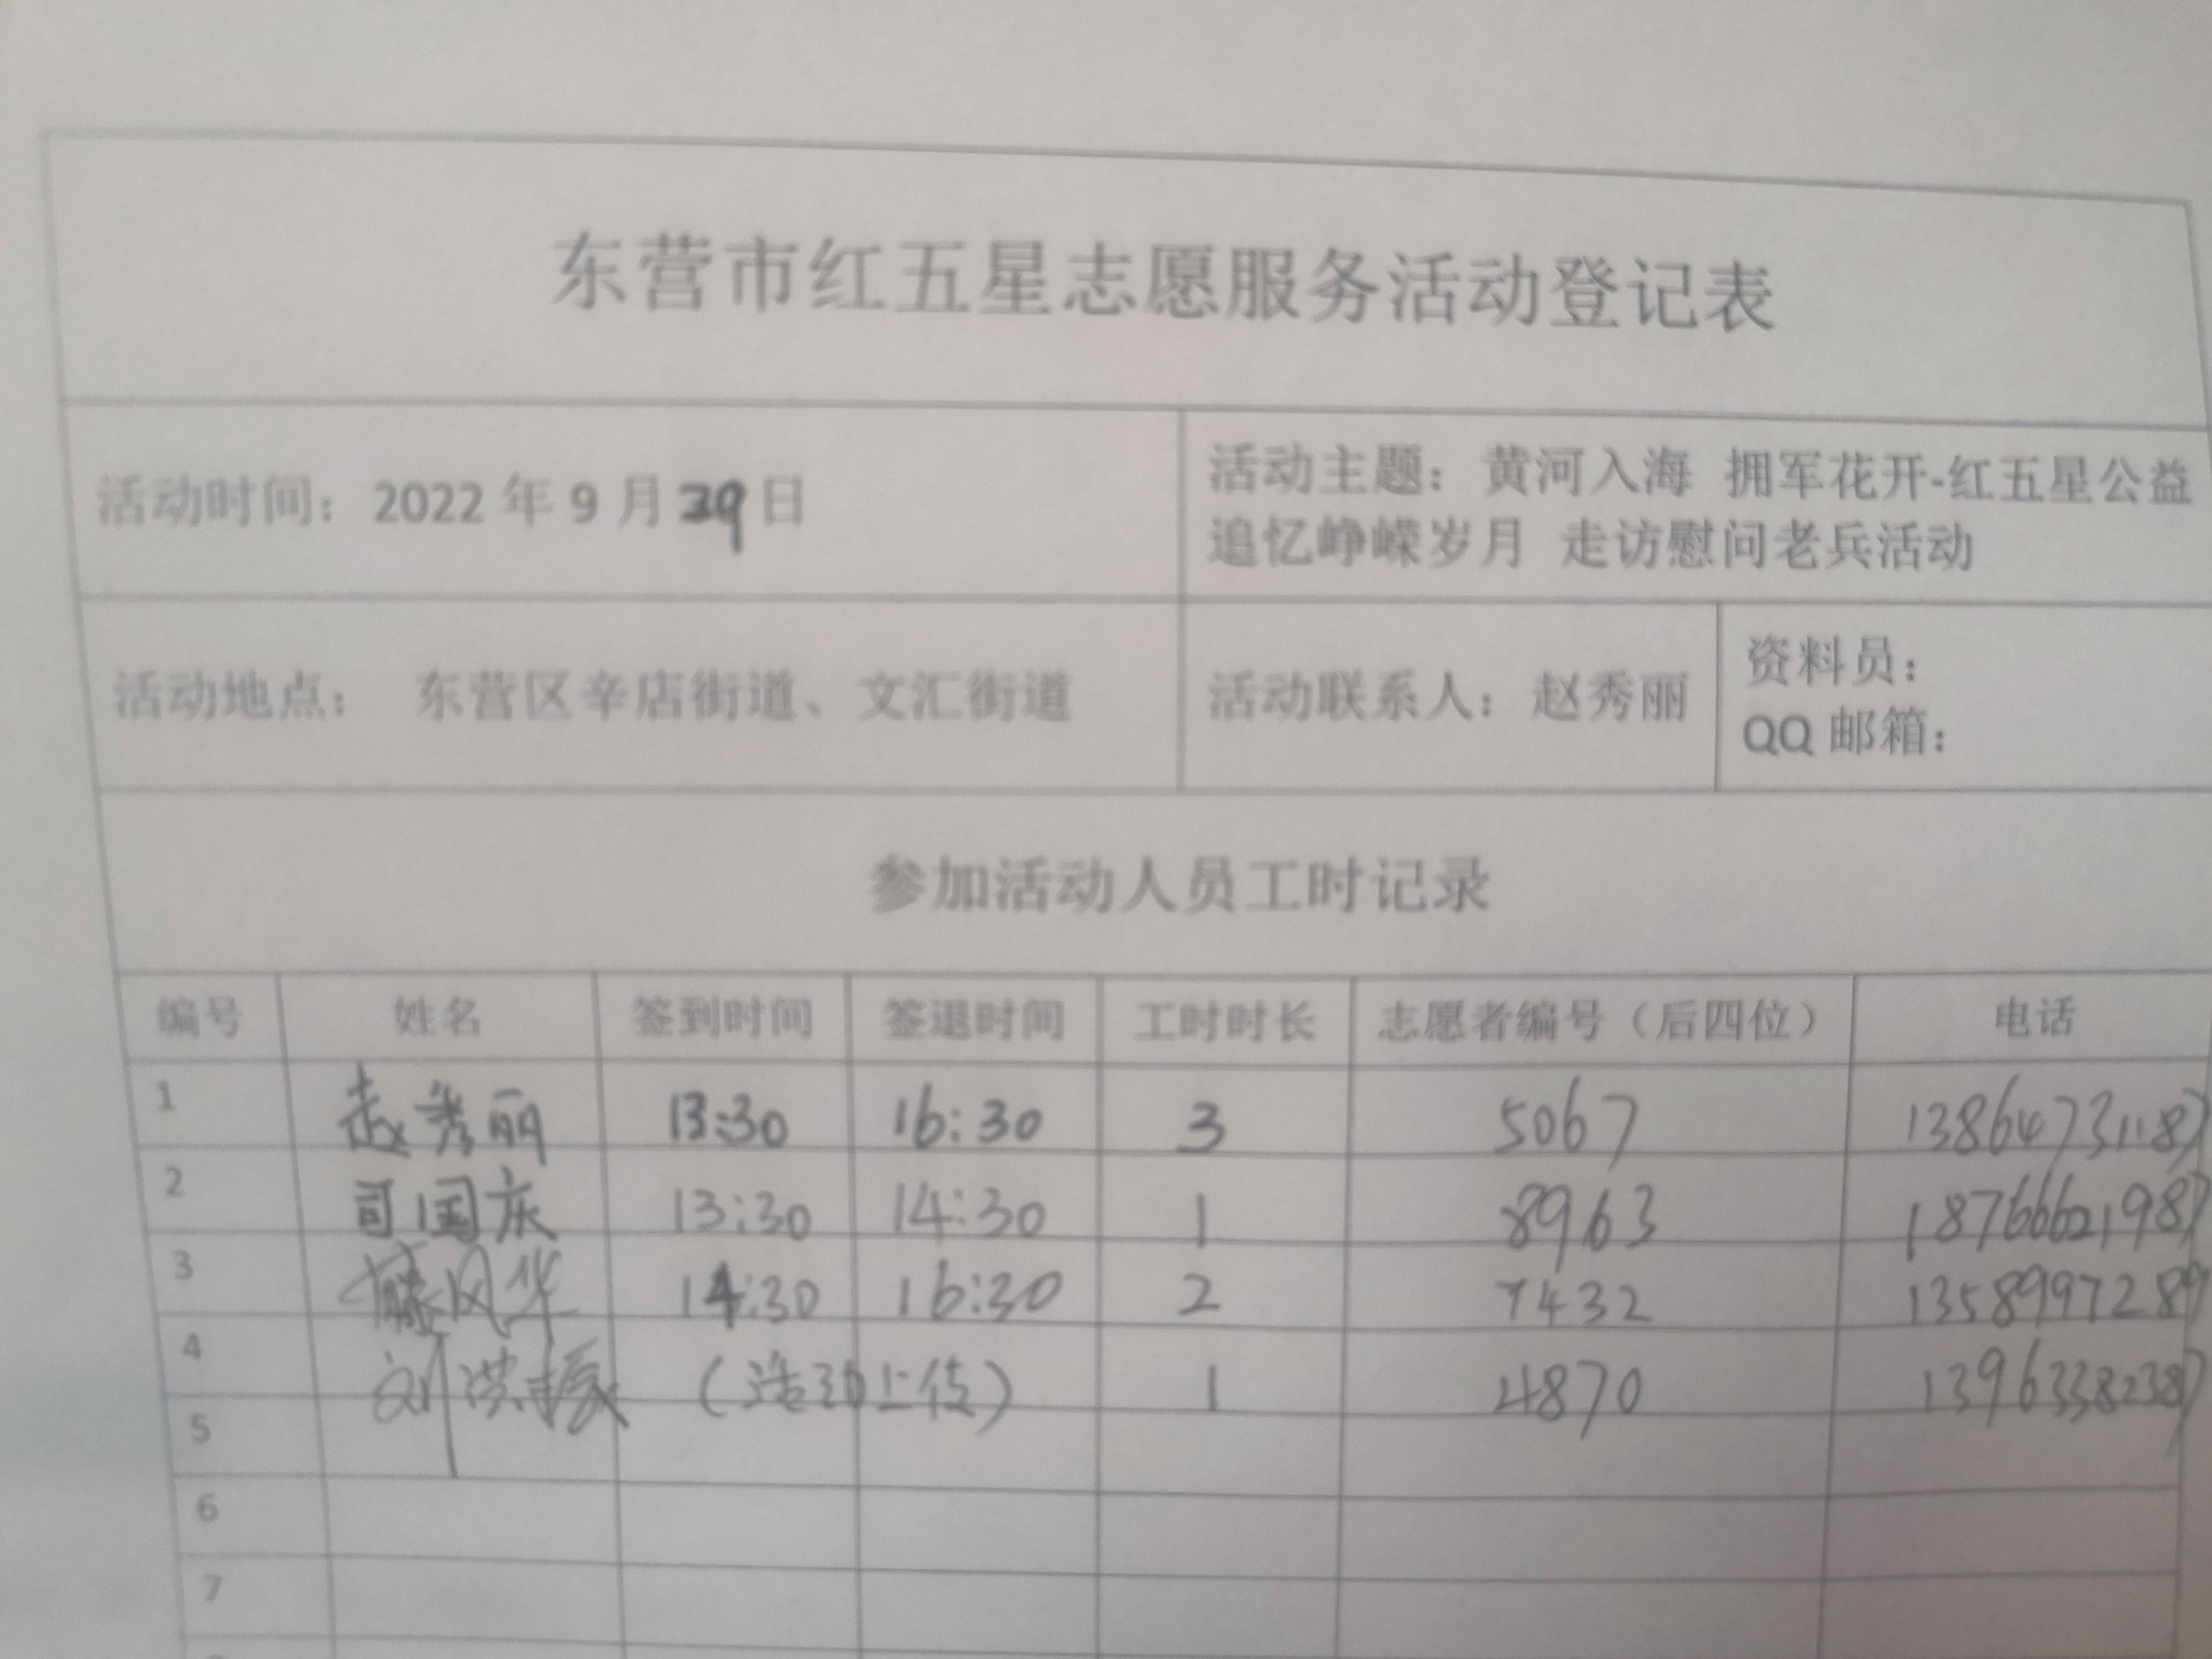 东营市红五星志愿服务活动登记表
活动时间：2022 年 9 月 29 日
活动主题：黄河入海 拥军花开-红五星公益
追忆峥嵘岁月 走访慰问老兵活动
活动地点： 东营区辛店街道、文汇街道
活动联系人：赵秀丽
资料员：
QQ 邮箱：
参加活动人员工时记录
编号 姓名 签到时间 签退时间 工时时长 志愿者编号（后四位） 电话
1 赵秀丽 13:30 16:30 3 5067 13864731187
2 司国庆 13:30 14:30 1 8963 18766621987
3 滕风华 14:30 16:30 2 7432 1358997289
4 刘洪振 （活动上传） 1 4870 13963382387
5
6
7